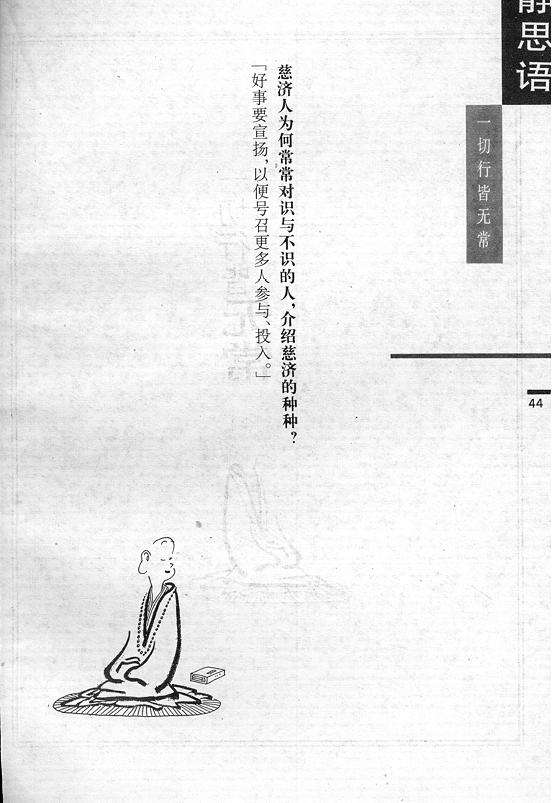 静思语
一切行皆无常
44
慈济人为何常常对识与不识的人，介绍慈济的种种？
「好事要宣扬，以便号召更多人参与、投入。」